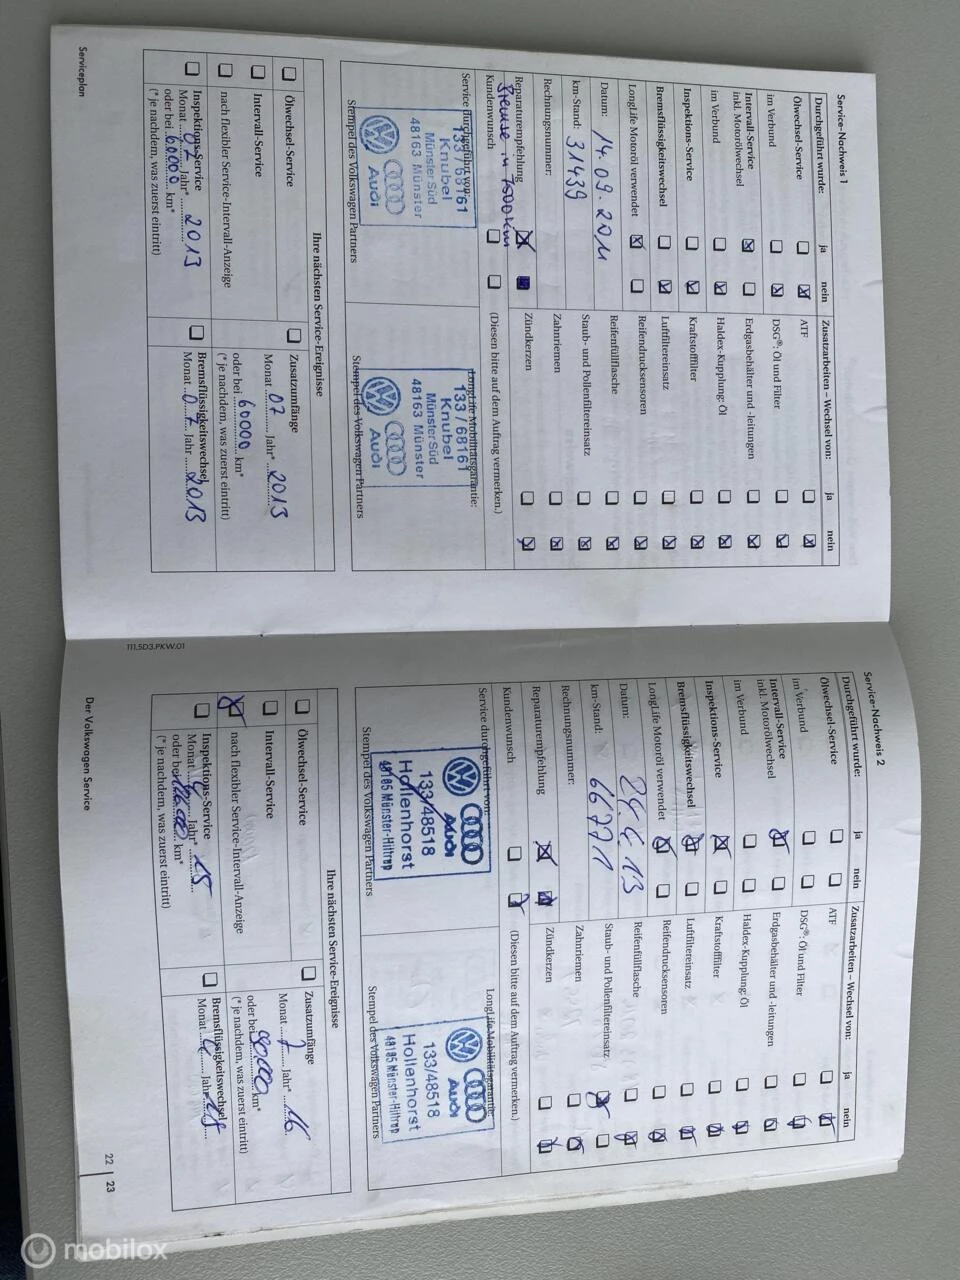 Service-Nachweis 1
Durchgeführt wurde: ja nein Zusatzarbeiten – Wechsel von: ja nein
Ölwechsel-Service ATF
im Verbund DSG®: Öl und Filter
Intervall-Service Erdgasbehälter und -leitungen
inkl. Motorölwechsel
im Verbund Haldex-Kupplung: Öl
Inspektions-Service Kraftstofffilter
Bremsflüssigkeitswechsel Luftfiltereinsatz
LongLife Motoröl verwendet Reifendrucksensoren
Datum: 14.09.2011 Reifenfüllflasche
km-Stand: 31439 Staub- und Pollenfiltereinsatz
Rechnungsnummer: Zahnriemen
Reparaturempfehlung Zündkerzen
Bremse in 7500 km
Kundenwunsch (Diesen bitte auf dem Auftrag vermerken.)
Service durchgeführt von: LongLife Mobilitätsgarantie:
133/68161 133/68161
Knubel Knubel
Münster Süd Münster Süd
48163 Münster 48163 Münster
Audi Audi
Stempel des Volkswagen Partners Stempel des Volkswagen Partners
Ihre nächsten Service-Ereignisse
Ölwechsel-Service Zusatzumfänge
Monat 07 Jahr* 2013
Intervall-Service oder bei 60000 km*
nach flexibler Service-Intervall-Anzeige (* je nachdem, was zuerst eintritt)
Inspektions-Service Bremsflüssigkeitswechsel
Monat 07 Jahr* 2013 Monat 07 Jahr 2013
oder bei 60000 km*
(* je nachdem, was zuerst eintritt)
Serviceplan
Service-Nachweis 2
Durchgeführt wurde: ja nein Zusatzarbeiten – Wechsel von: ja nein
Ölwechsel-Service ATF
im Verbund DSG®: Öl und Filter
Intervall-Service Erdgasbehälter und -leitungen
inkl. Motorölwechsel
im Verbund Haldex-Kupplung: Öl
Inspektions-Service Kraftstofffilter
Bremsflüssigkeitswechsel Luftfiltereinsatz
LongLife Motoröl verwendet Reifendrucksensoren
Datum: 24.4.13 Reifenfüllflasche
km-Stand: 66771 Staub- und Pollenfiltereinsatz
Rechnungsnummer: Zahnriemen
Reparaturempfehlung Zündkerzen
Kundenwunsch (Diesen bitte auf dem Auftrag vermerken.)
Service durchgeführt von: LongLife-Mobilitätsgarantie:
Audi Audi
133/48518 133/48518
Hollenhorst Hollenhorst
48165 Münster-Hiltrup 48165 Münster-Hiltrup
Stempel des Volkswagen Partners Stempel des Volkswagen Partners
Ihre nächsten Service-Ereignisse
Ölwechsel-Service Zusatzumfänge
Monat 7 Jahr* 16
Intervall-Service oder bei 90000 km*
nach flexibler Service-Intervall-Anzeige (* je nachdem, was zuerst eintritt)
Inspektions-Service Bremsflüssigkeitswechsel
Monat 4 Jahr* 15 Monat 4 Jahr 15
oder bei km*
(* je nachdem, was zuerst eintritt)
111.5D3.PKW.01
Der Volkswagen Service
22 | 23
mobilox